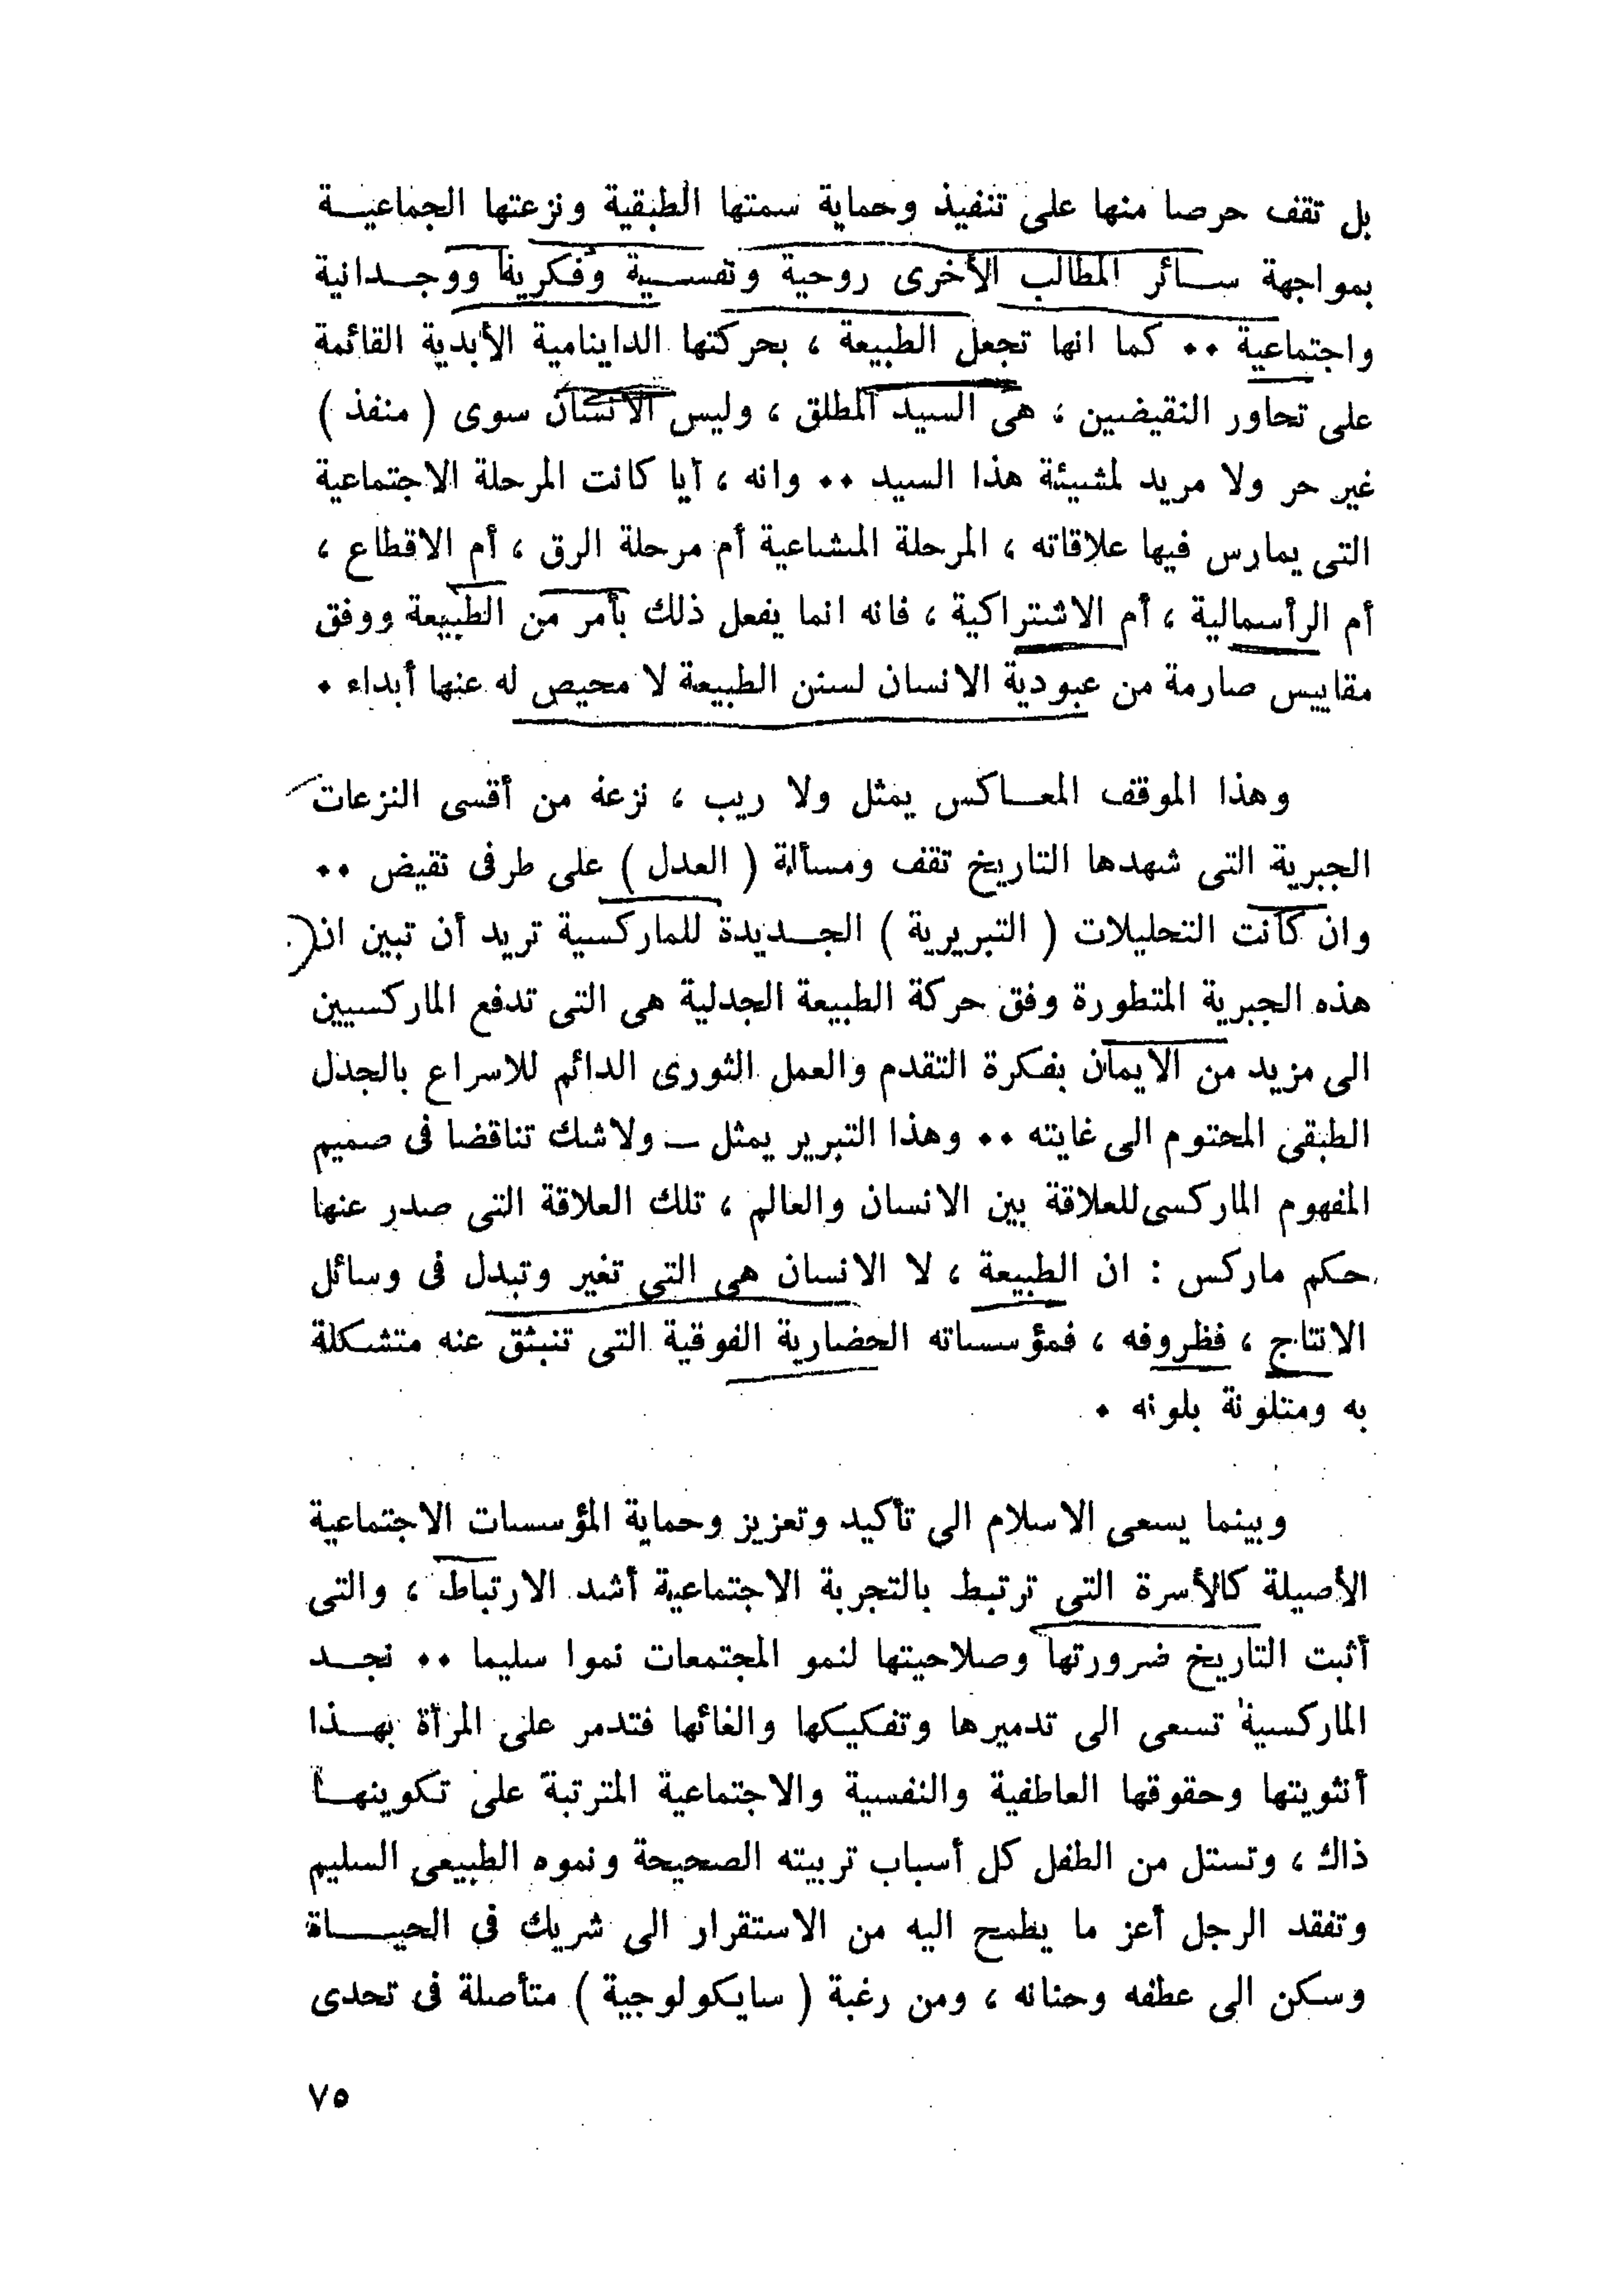 بل تقف حرصا منها على تنفيذ وحماية سمتها الطبقية ونزعتها الجماعيــة
بمواجهة ســائر المطالب الأخرى روحية ونفســية وفكرية ووجــدانية
واجتماعية ٠٠ كما انها تجعل الطبيعة ، بحركتها الداينامية الأبدية القائمة
على تحاور النقيضين ، هى السيد المطلق ، وليس الانسان سوى ( منفذ )
غير حر ولا مريد لمشيئة هذا السيد ٠٠ وانه ، أيا كانت المرحلة الاجتماعية
التى يمارس فيها علاقاته ، المرحلة المشاعية أم مرحلة الرق ، أم الاقطاع ،
أم الرأسمالية ، أم الاشتراكية ، فانه انما يفعل ذلك بأمر من الطبيعة ووفق
مقاييس صارمة من عبودية الانسان لسنن الطبيعة لا محيص له عنها أبداء ٠
وهذا الموقف المعــاكس يمثل ولا ريب ، نزعة من أقسى النزعات
الجبرية التى شهدها التاريخ تقف ومسألة ( العدل ) على طرفى نقيض ٠٠
وان كانت التحليلات ( التبريرية ) الجــديدة للماركسية تريد أن تبين ان
هذه الجبرية المتطورة وفق حركة الطبيعة الجدلية هى التى تدفع الماركسيين
الى مزيد من الايمان بفكرة التقدم والعمل الثورى الدائم للاسراع بالجدل
الطبقى المحتوم الى غايته ٠٠ وهذا التبرير يمثل ــ ولاشك تناقضا فى صميم
المفهوم الماركسى للعلاقة بين الانسان والعالم ، تلك العلاقة التى صدر عنها
حكم ماركس : ان الطبيعة ، لا الانسان هى التى تغير وتبدل فى وسائل
الانتاج ، فظروفه ، فمؤسساته الحضارية الفوقية التى تنبثق عنه متشكلة
به ومتلونة بلونه ٠
وبينما يسعى الاسلام الى تأكيد وتعزيز وحماية المؤسسات الاجتماعية
الأصيلة كالأسرة التى ترتبط بالتجربة الاجتماعية أشد الارتباط ، والتى
أثبت التاريخ ضرورتها وصلاحيتها لنمو المجتمعات نموا سليما ٠٠ نجــد
الماركسية تسعى الى تدميرها وتفكيكها والغائها فتدمر على المرأة بهــذا
أنثويتها وحقوقها العاطفية والنفسية والاجتماعية المترتبة على تكوينهــا
ذاك ، وتستل من الطفل كل أسباب تربيته الصحيحة ونموه الطبيعى السليم
وتفقد الرجل أعز ما يطمح اليه من الاستقرار الى شريك فى الحيــاة
وسكن الى عطفه وحنانه ، ومن رغبة ( سايكولوجية ) متأصلة فى تحدى
٧٥